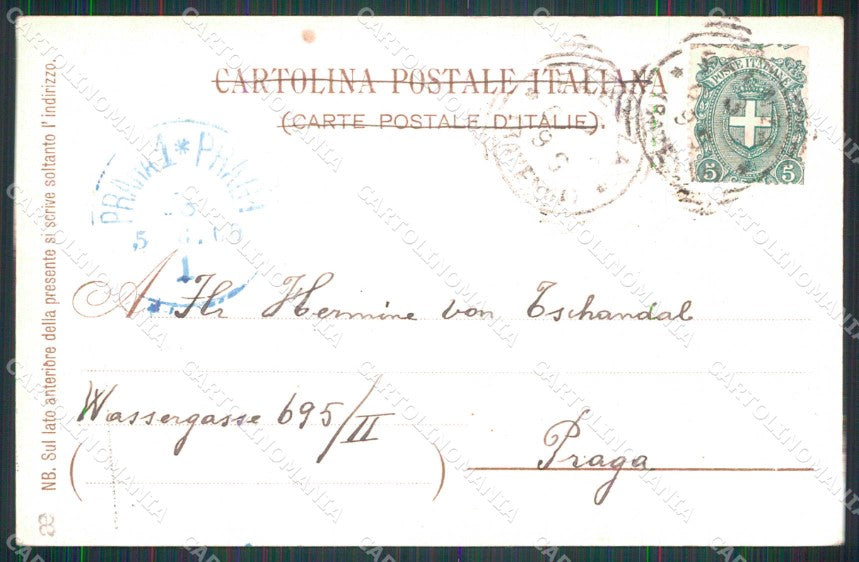 CARTOLINA POSTALE ITALIANA
(CARTE POSTALE D'ITALIE).
POSTE ITALIANE
5 5
PRAHA 1 * PRAGA
A Hr Hermine von Tschandal
Wassergasse 695/II
Praga
NB. Sul lato anteriore della presente si scrive soltanto l'indirizzo.
CARTOLINOMANIA